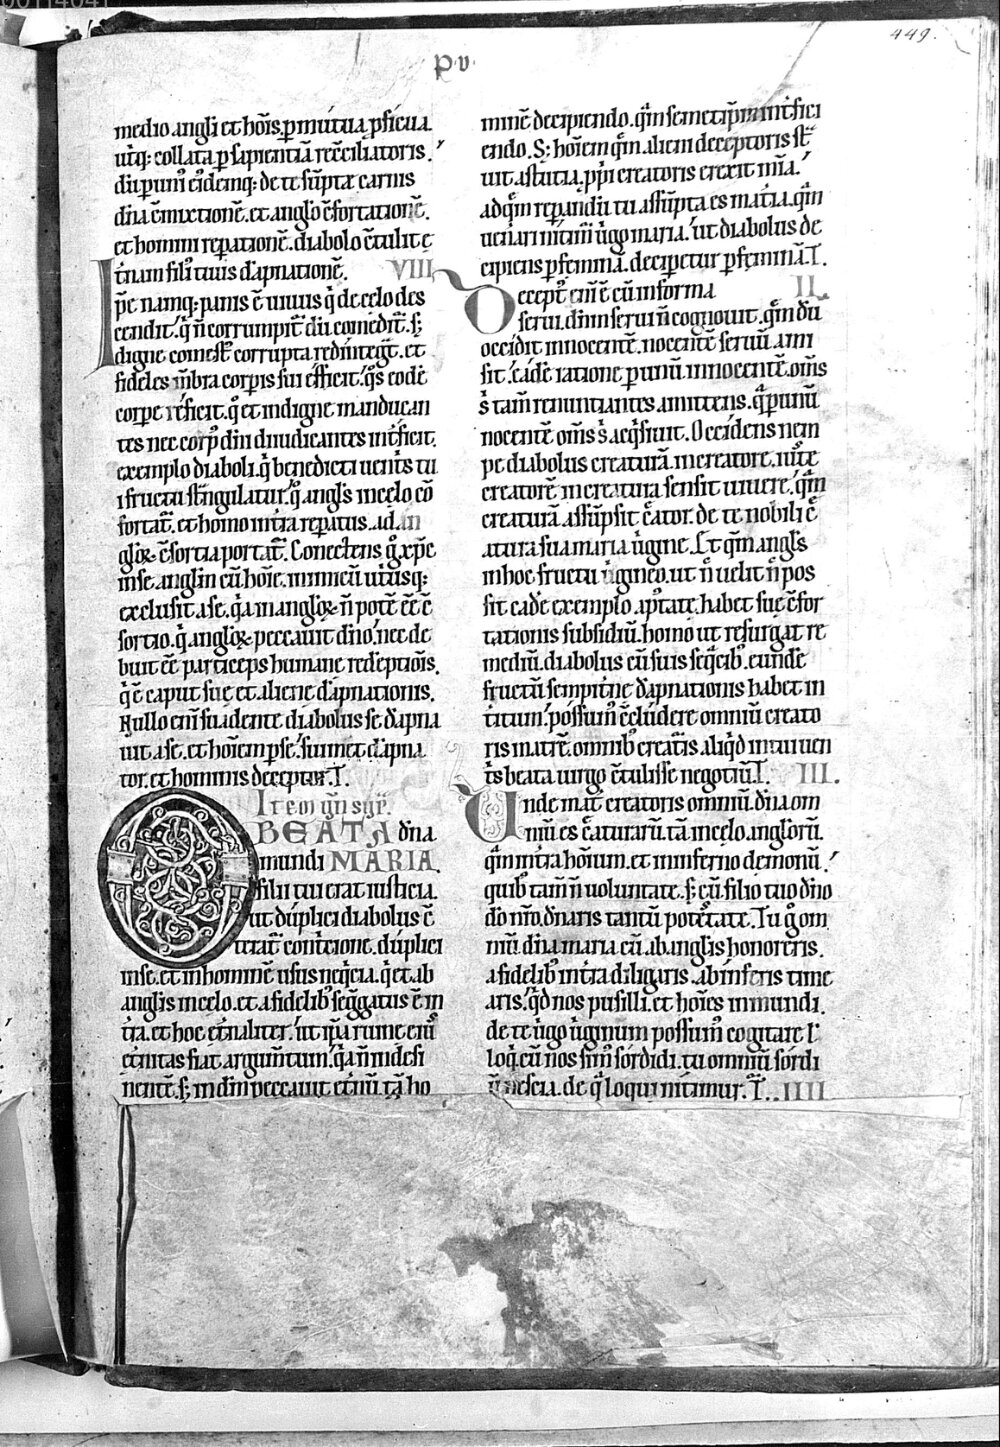 449.
P·V·
medio angli et hoīs. p mutua pficua
utq; collata p sapientiā recciliatoris.
dū p unū eidemq; de te sūptæ carnis
dīna cōmixtionē. et anglo cōfortationē.
et homini reparationē. diabolo cōtulit ę
t̄nam filii tuis dāpnationē. VIII
Ipse namq; panis ē uiuus q̄ de celo des
cendit. q̄ n̄ corrumpit̄ dū comedit̄. s;
digne comest' corrupta redintegt̄. et
fideles mb̄ra corpis sui efficit. q̄s eodē
corpe reficit. q̄ et indigne manducan
tes nec corp' dn̄i diiudicantes int̄ficit.
exemplo diaboli. q̄ benedicti uent̄s tu
i fructu st̄ngulatur. q̄ angl's in celo cō
fortat̄. et homo in t̄ra repatus. ad an
glox̄ cōfortia portat̄. Conectens ḡ xp̄c
in se anglm̄ cū hoīe. inimicū utiusq;
exclusit a se. q̄a in anglox̄ n̄ potē ēē cō
sortio. q̄ anglox̄ peccauit dn̄o. nec de
buit ēē particeps humane redēptiōis.
q̄ ē caput suę et aliene dāpnationis.
Nullo eni suadente diabolus se dāpna
uit a se. et hoīem p se. sui met dāpna
tor. et hominis deceptor. T.
Itē or̄
O BEATA dn̄a
mundi MARIA.
filii tui erat iusticia
ut duplici diabolus cō
terat̄ cont̄icione. duplici
in se. et in homine usus neq̄cia. q̄ et ab
anglis in celo. et a fidelib' seggatus ē in
t̄ra. et hoc et̄naliter. ut q̄a rume eiū
et̄nitas fiat argum̄tum. q̄a n̄ in desi
nentē. s; in dm̄ peccauit et̄nū. tā ho
minē decipiendo. q̄m semetip̄m int̄fici
endo. S; hoīem q̄m alieni deceptoris st̄
uit astutia. p̄pi creatoris erexit mīa.
ad q̄m reparandū tu assūpta es mat̄ia. q̄m
uenari nitim̄ ūgo maria. ut diabolus de
cipiens p feminā. deciperetur p feminā. T.
Decept' eni ē cū in forma II.
serui. dn̄m serui n̄ cognouit. q̄m dū
occidit innocentē. nocentē seruū ami
sit. eadē ratione p unū innocentē. om̄s
s' tam̄ renuntiantes amittens. q̄ p unū
nocentē om̄s s' acq̄siuit. Occidens nem
pe diabolus creaturā. in creatore. iuste
creatorē in creatura sensit uiuere. q̄m
creaturā assūpsit c̄ator. de te nobili c̄
atura sua maria ūgine. Et q̄m angl's
in hoc fructu ūgineo. ut n̄ uelit n̄ pos
sit cadē exemplo aptate. habet suę cōfor
tationis subsidiū. homo ut resurgat re
mediū. diabolus cū suis seq̄cib'. eundē
fructū sempit̄ne dāpnationis habet in
titum. possum' cōcludere omniū creato
ris matrē. omnib' creatis aliq̄d in tui uen
t̄s beata uirgo cōtulisse negotiū. T. III.
Unde mat̄ creatoris omniū. dn̄a om
niū es c̄aturarū. tā in celo. anglorū.
q̄m in t̄ra hoīum. et in inferno demonū
quib' tam̄ n̄ uoluntate. s; cū filio tuo dn̄o
dō nr̄o. dn̄aris tantū potētate. Tu ḡ om
niū dn̄a maria cū ab anglis honoreris.
a fidelib' in t̄ra diligaris. ab inferis time
aris. q̄d nos pusilli. et hoīes inmundi.
de te ūgo ūginum possum' cogitare l'
loq̄. cū nos sim' sordidi. tu omniū sordi
ū nescia. de q̄ loqui nitimur. T. IIII